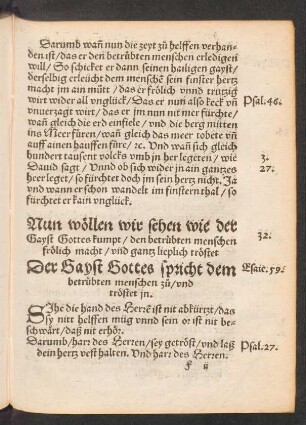 Darumb wañ nun die zeyt zů helffen verhan-
den ist/das er den betrübten menschen erledigen
will/So schicket er dann seinen hailigen gayst/
derselbig erleücht dem menschẽ sein finster hertz
macht jm ain můtt/das er frölich vnnd trutzig
wirt wider all vnglück/Das er nun also keck vñ
vnuerzagt wirt/das er jm nun nit mer fürchte/
wañ gleich die erd einfiele/vnd die berg mitten
ins Meer füren/wañ gleich das meer tobete vñ
auff ainen hauffen füre/ꝛc. Vnd wañ sich gleich
hundert tausent volcks vmb jn her legeten/wie
Dauid sagt/Vnnd ob sich wider jn ain gantzes
heer leget/so fürchtet doch jm sein hertz nicht. Ja
vnd wann er schon wandelt im finstern thal/so
fürchtet er kain vnglück.
Psal. 46.
3.
27.
Nun wöllen wir sehen wie der
Gayst Gottes kumpt/den betrübten menschen
frölich macht/vnd gantz lieplich tröstet
32.
Der Gayst Gottes spricht dem
betrübten menschen zů/vnd
tröstet jn.
Esaie. 59.
SIhe die hand des Herrẽ ist nit abkürtzt/das
sy nitt helffen müg vnnd sein or ist nit be-
schwärt/daß nit erhör.
Darumb/harr des Herren/sey getröst/vnd laß
dein hertz vest halten. Vnd harr des Herren.
Psal. 27.
F ij